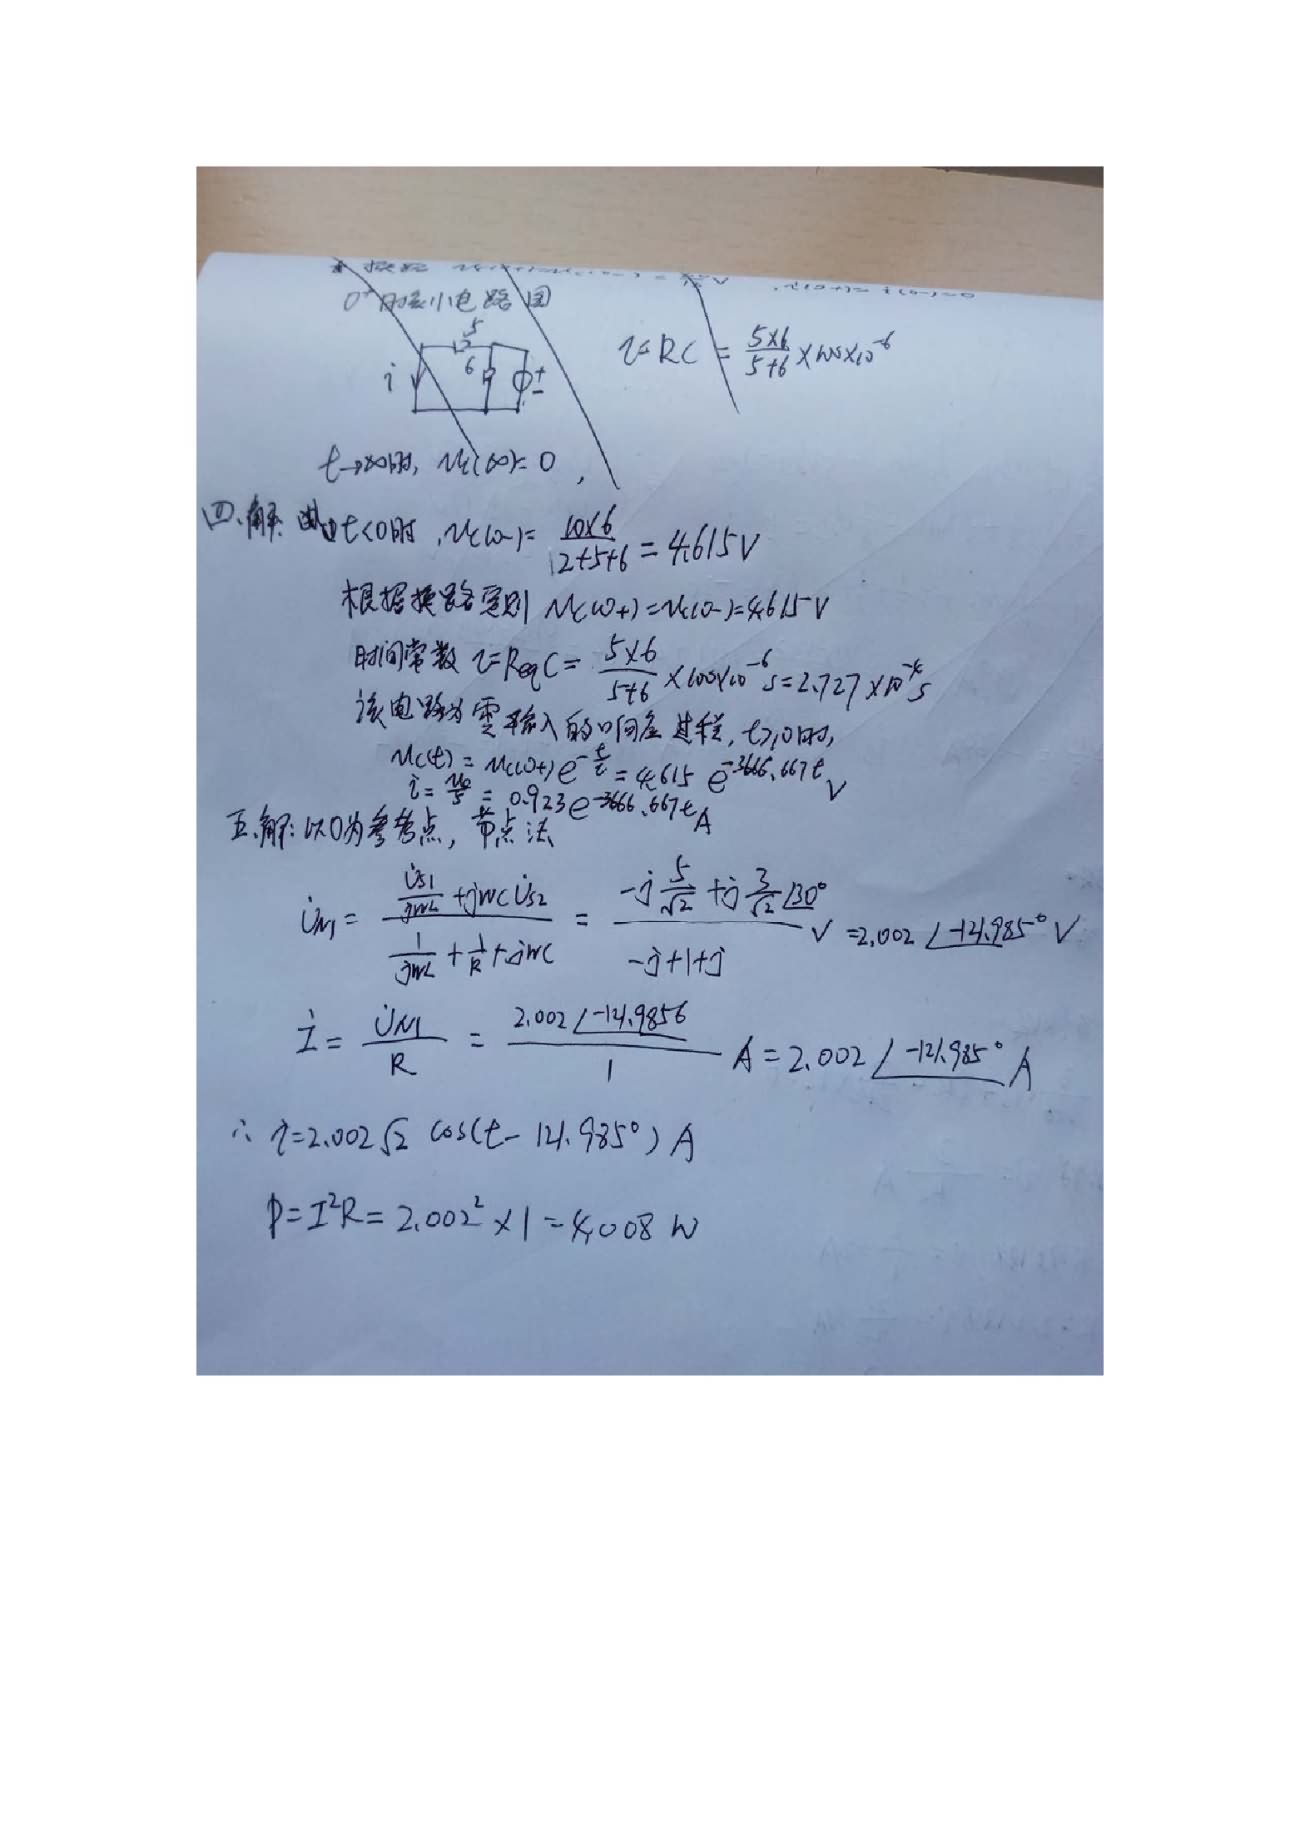 换路
0+时最小电路图
5
6
i
+
-
τ=RC = \frac{5×6}{5+6}×100×10^{-6}
t→∞时, u_c(∞)=0,
四、解: 由t<0时,u_c(0-)= \frac{10×6}{2+5+6} = 4.615V
根据换路定则 u_c(0+)=u_c(0-)=4.615V
时间常数 τ=ReqC= \frac{5×6}{5+6}×100×10^{-6}s=2.727×10^{-4}s
该电路为零输入的响应过程, t≥0时,
u_c(t)=u_c(0+)e^{-\frac{t}{τ}}=4.615 e^{-3666.667t}V
i=\frac{u_c}{5}=0.923e^{-3666.667t}A
五、解: 以0为参考点, 节点法
U̇_{N1} = \frac{\frac{U̇_{S1}}{jwL}+jwCU̇_{S2}}{\frac{1}{jwL}+\frac{1}{R}+jwC} = \frac{-j\frac{5}{√2}+j\frac{3}{√2}∠30°}{-j+1+j} V =2.002∠-121.985° V
İ = \frac{U̇_{N1}}{R} = \frac{2.002∠-121.9856}{1} A = 2.002∠-121.985° A
∴ i=2.002√2 cos(t-121.985°) A
P=I²R=2.002²×1=4.008 W